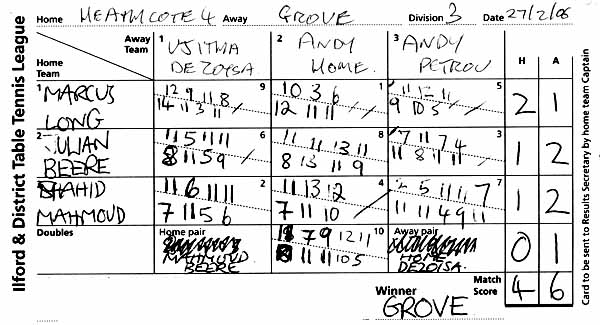 Ilford & District Table Tennis League
Home HEATHCOTE 4 Away GROVE Division 3 Date 27/2/06
Away Team
Home Team
1 VJITHA DEZOYSA
2 ANDY HOME.
3 ANDY PETROV
H A
1 MARCUS LONG
12 9 11 8 9
14 11 3 11
10 3 6 1
12 11 11
11 5
9 10 5
2 1
2 JULIAN BEERE
11 5 11 11 6
8 11 5 9
11 11 13 11 8
8 13 11 9
7 11 7 4 3
11 8 11 11
1 2
3 SHAHID MAHMOUD
11 6 11 11 2
7 11 5 6
11 13 12 4
7 11 10
5 11 7
11 11 4 9 11
1 2
Doubles
Home pair
MAHMOUND BEERE
7 9 12 11 10
11 11 10 5
Away pair
HOME DEZOYSA.
0 1
Winner GROVE
Match Score
4 6
Card to be sent to Results Secretary by home team Captain